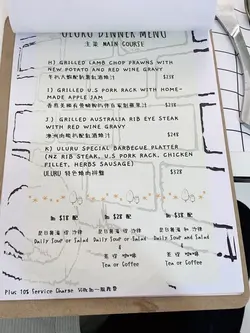 ULURU DINNER MENU
主菜 MAIN COURSE
H) GRILLED LAMB CHOP PRAWNS WITH
NEW POTATO AND RED WINE GRAVY
$238
I) GRILLED U.S PORK RACK WITH HOME-
MADE APPLE JAM
$218
J) GRILLED AUSTRALIA RIB EYE STEAK
WITH RED WINE GRAVY
$248
K) ULURU SPECIAL BARBEQUE PLATTER
(NZ RIB STEAK, U.S PORK RACK, CHICKEN
FILLET, HERBS SAUSAGE)
ULURU
$328
In $18 配 In $28 配 In $38 配
是日餐湯 或 沙律 是日餐湯 或 沙律 是日餐湯 和 沙律
Daily Soup or Salad Daily Soup or Salad Daily Soup and Salad
&
茶 或 咖啡 茶 或 咖啡
Tea or Coffee Tea or Coffee
Plus 10% Service Charge 另加一服務費